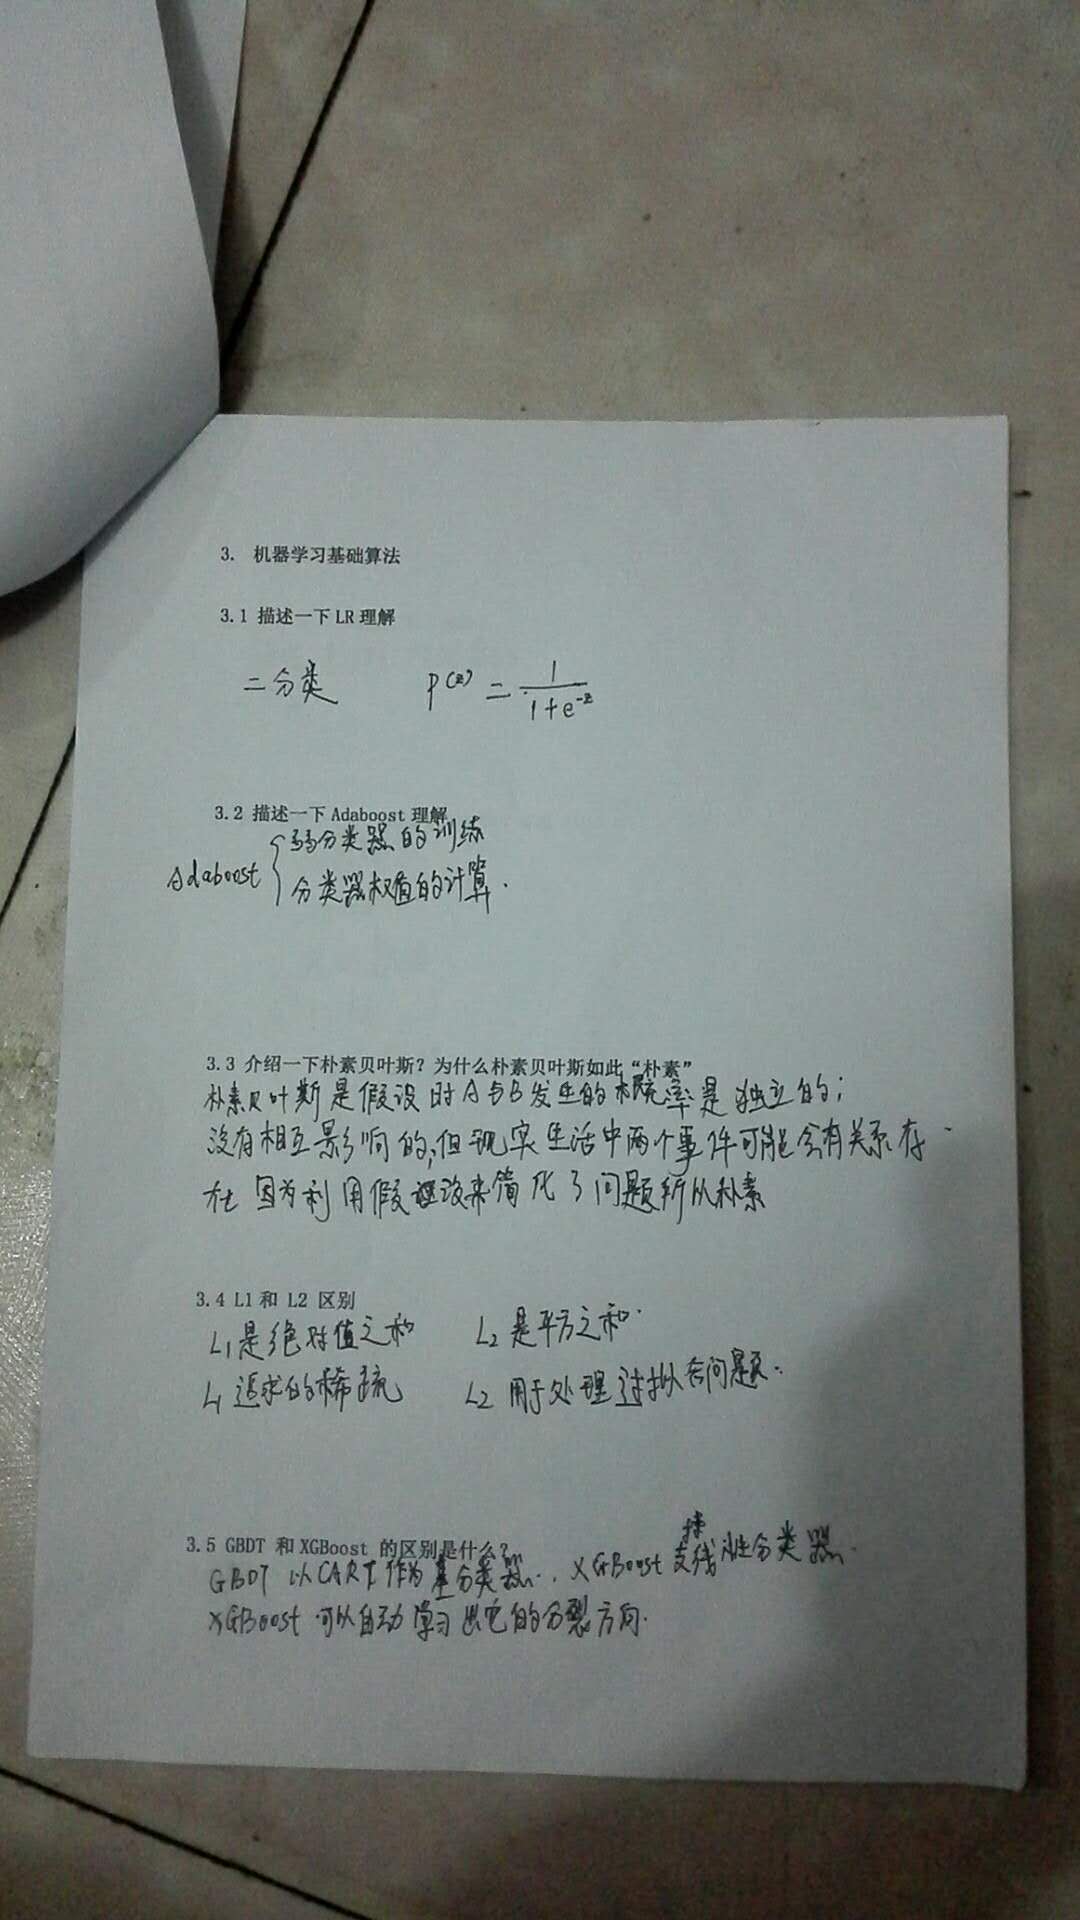 3. 机器学习基础算法
3.1 描述一下 LR 理解
二分类 P(z) = 1/(1+e^-z)
3.2 描述一下 Adaboost 理解
弱分类器的训练
Adaboost {
分类器权值的计算.
3.3 介绍一下朴素贝叶斯？为什么朴素贝叶斯如此“朴素”
朴素贝叶斯是假设时A与B发生的概率是独立的；
没有相互影响的，但现实生活中两个事件可能会有关系存
在 因为利用假设来简化了问题所以朴素
3.4 L1 和 L2 区别
L1是绝对值之和 L2是平方之和.
L1追求的稀疏 L2用于处理过拟合问题.
3.5 GBDT 和 XGBoost 的区别是什么？
GBDT 以CART作为基分类器. XGBoost 支持线性分类器.
XGBoost 可以自动学习出它的分裂方向.